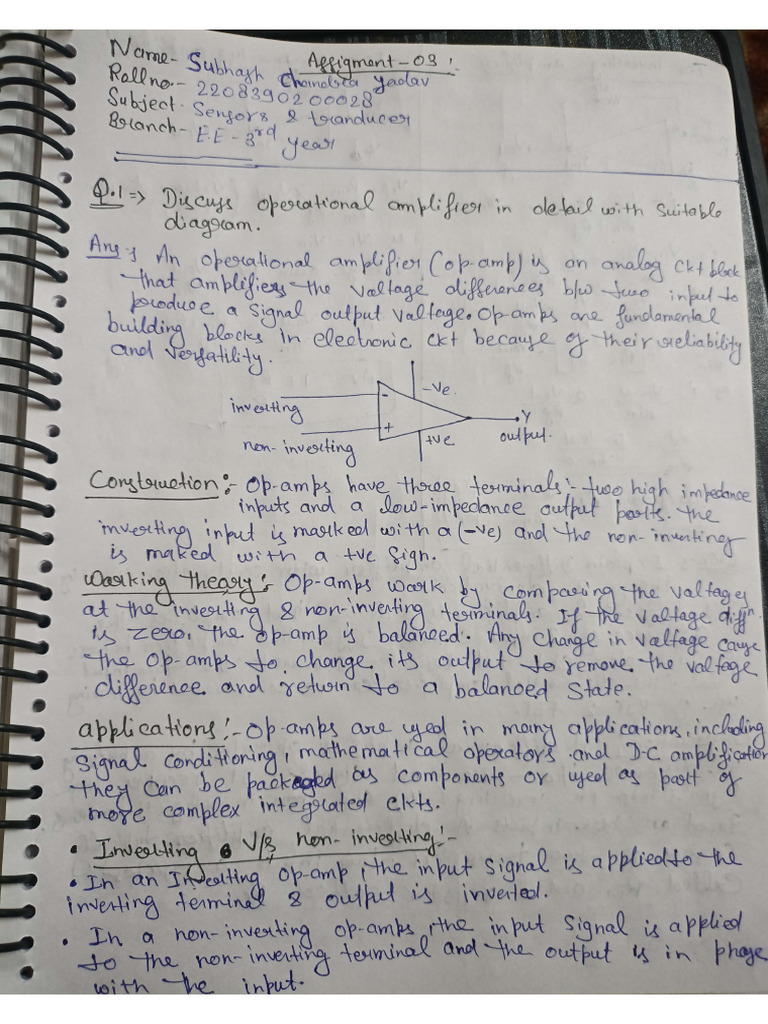 Assigment - 03 :
Name - Subhash Chandra Yadav
Roll no. - 2208390200028
Subject - Sensors & tranducer
Branch - E.E - 3rd year
Q.1 => Discuss operational amplifier in detail with suitable
diagram.
Ans :- An operational amplifier (op-amp) is an analog ckt block
that amplifiers the voltage differences b/w two input to
produce a signal output voltage. Op-amps are fundamental
building blocks in electronic ckt because of their reliability
and versatility.
-ve
inverting -
Y
non-inverting +
+ve
output.
Construction :- Op-amps have three terminals :- two high impedance
inputs and a low-impedance output ports. the
inverting input is marked with a (-ve) and the non-inverting
is maked with a +ve sign.
Working theory :- Op-amps work by comparing the voltages
at the inverting & non-inverting terminals. If the voltage diffn
is zero, the op-amp is balanced. Any change in voltage cause
the op-amps to change its output to remove the voltage
difference and return to a balanced state.
applications :- Op-amps are used in many applications, including
signal conditioning, mathematical operators and D-C amplification
they can be packaged as components or used as part of
more complex integrated ckts.
• Inverting V/s non-inverting :-
• In an Inverting op-amp, the input signal is applied to the
inverting terminal & output is inverted.
• In a non-inverting op-amps, the input signal is applied
to the non-inverting terminal and the output is in phase
with the input.